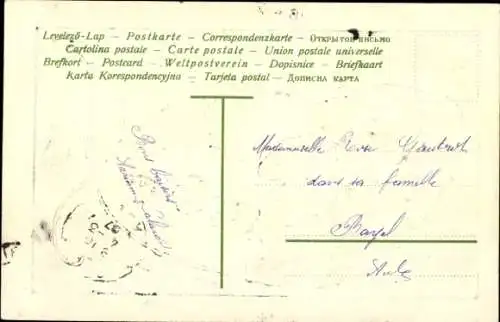 Levelező-Lap – Postkarte – Correspondenzkarte – Открытое письмо
Cartolina postale – Carte postale – Union postale universelle
Brefkort – Postcard – Weltpostverein – Dopisnice – Briefkaart
Karta Korespondencyjna – Tarjeta postal – Дописна карта
Mademoiselle
dans sa famille
Bayel
Aube
Bons baisers